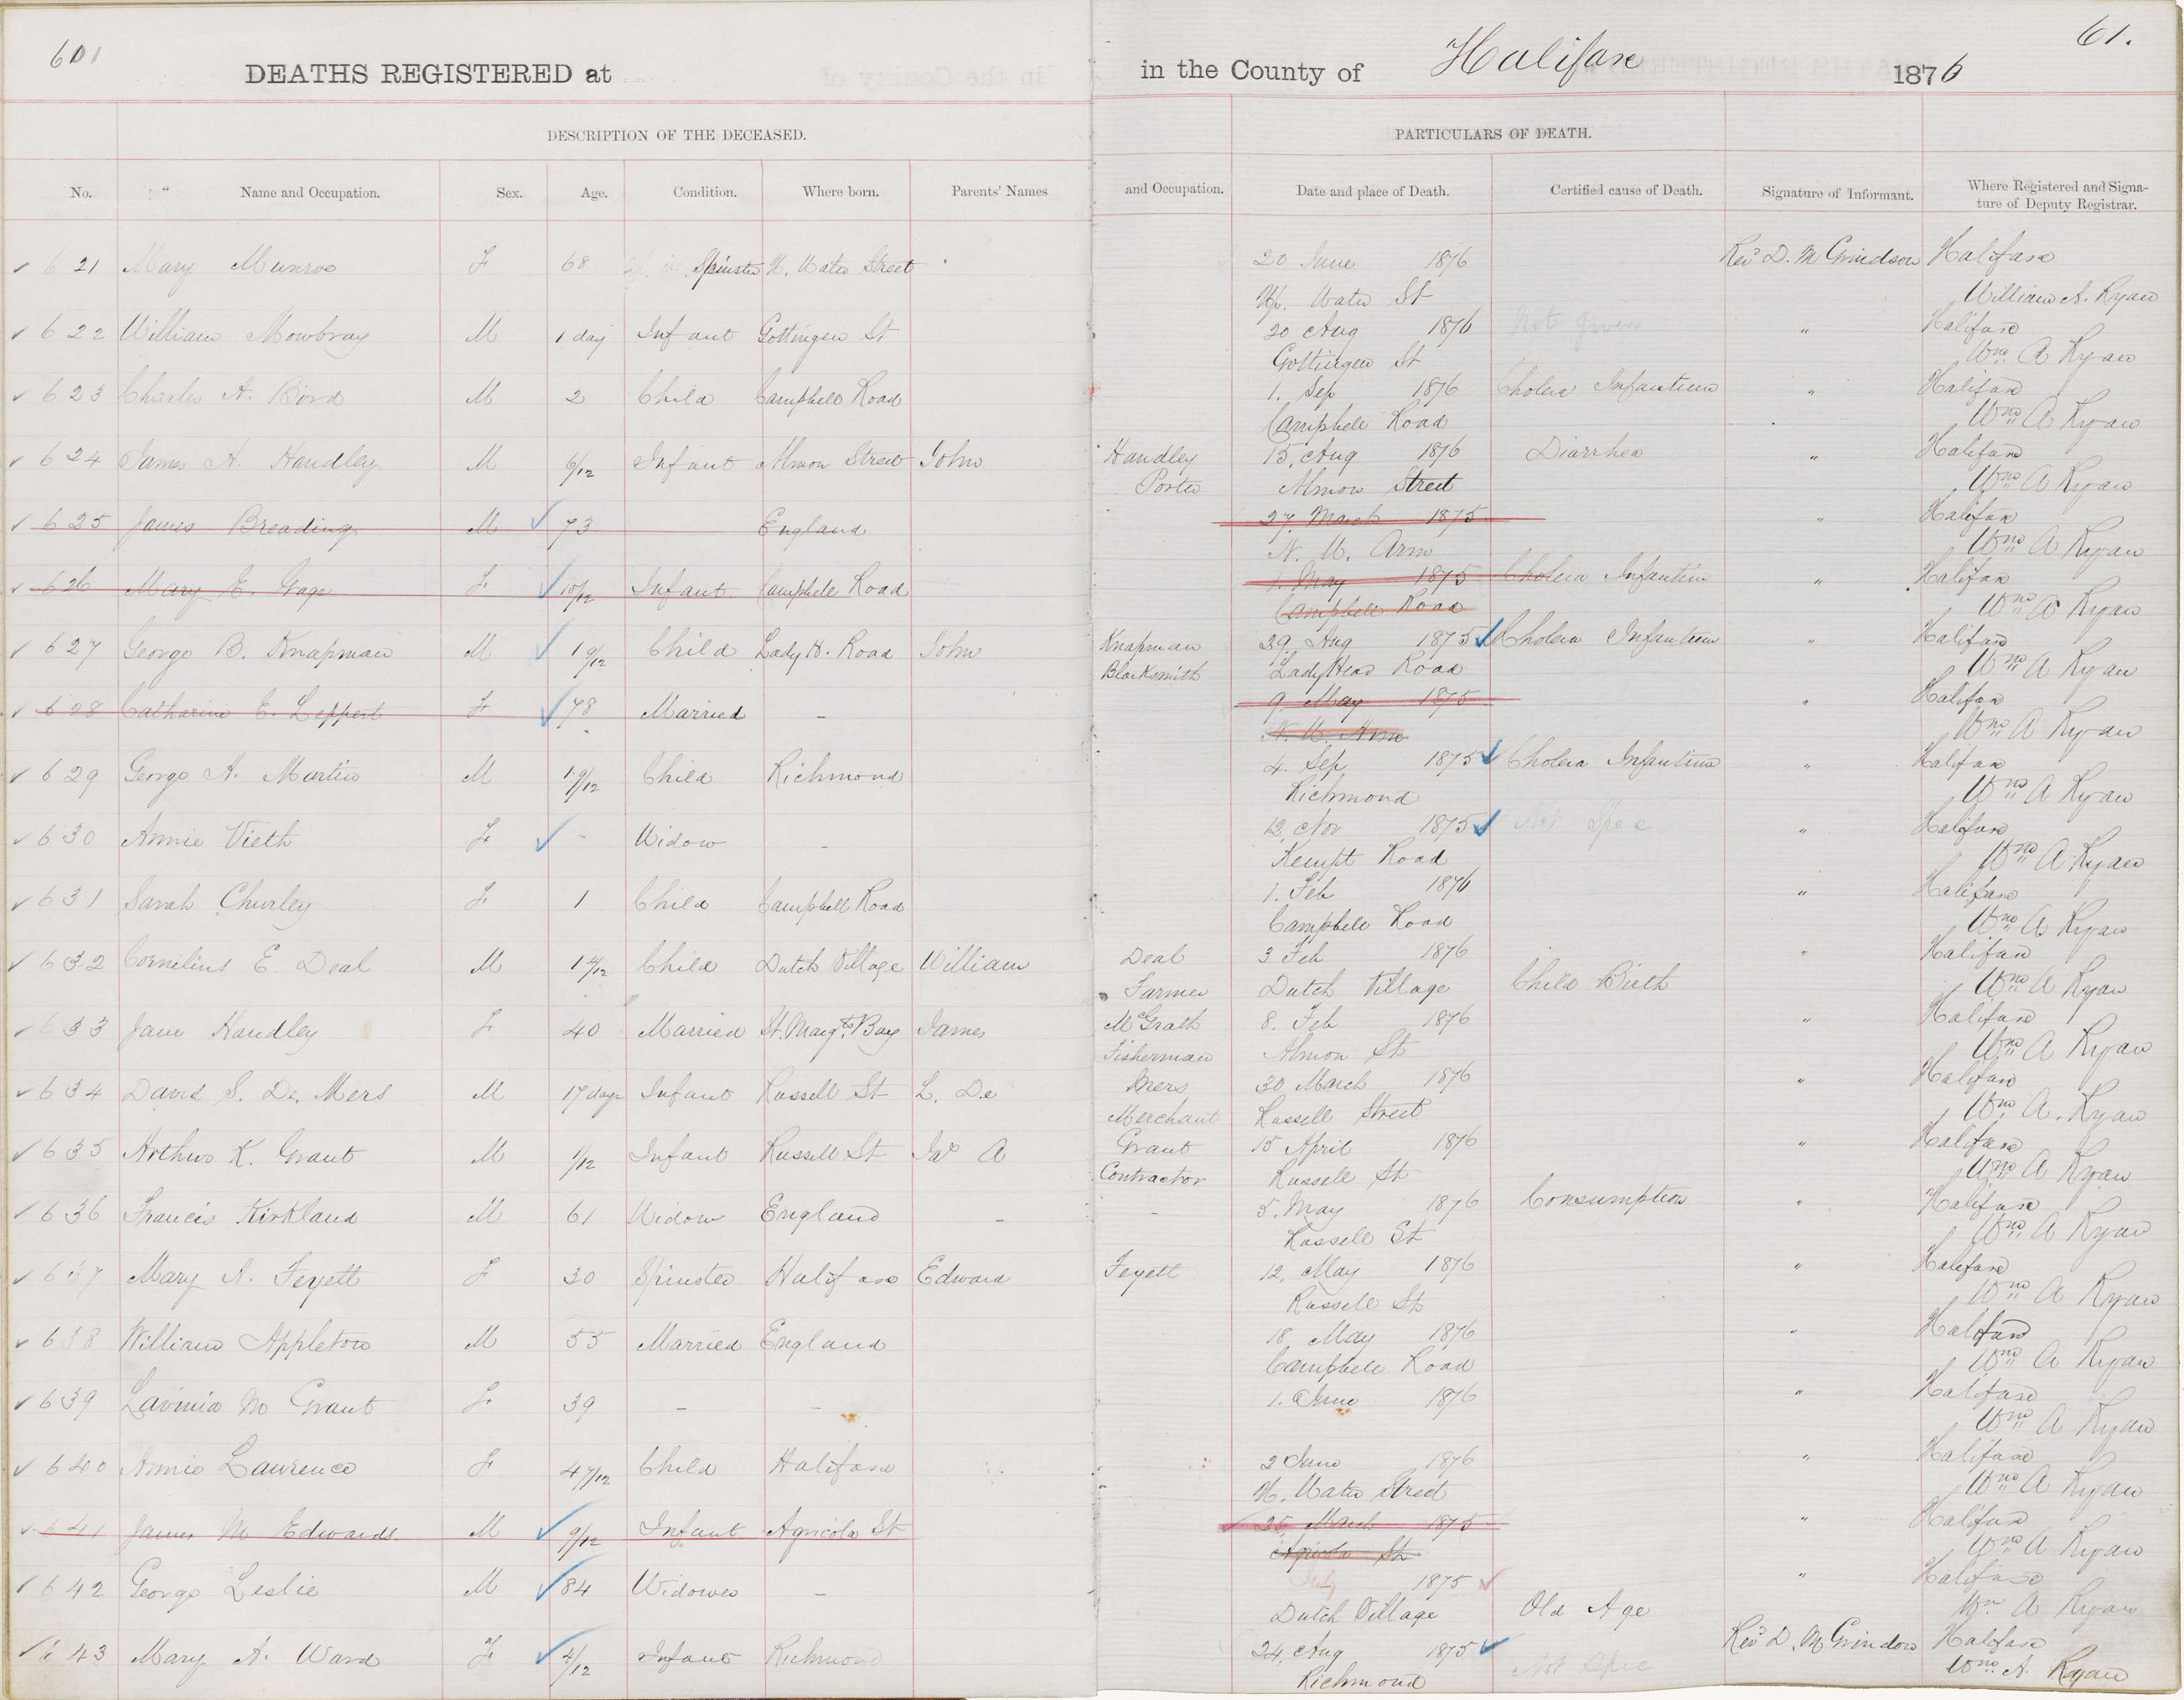 601
DEATHS REGISTERED at
in the County of Halifax 1876
61.
DESCRIPTION OF THE DECEASED.
PARTICULARS OF DEATH.
No. Name and Occupation. Sex. Age. Condition. Where born. Parents' Names and Occupation. Date and place of Death. Certified cause of Death. Signature of Informant. Where Registered and Signa-
ture of Deputy Registrar.
621 Mary Munroe F 68 Spinster U. Water Street 20 June 1876 Halifax
Up. Water St William A. Ryan
622 William Mowbray M 1 day Infant Gottingen St 20 Aug 1876 Not given " Halifax
Gottingen St Wm A Ryan
623 Charles A. Bird M 2 Child Campbell Road 1. Sep 1876 Cholera Infantum " Halifax
Campbell Road Wm A Ryan
624 James A. Handley M 6/12 Infant Almon Street John Handley 15, Aug 1876 Diarrhea " Halifax
Porter Almon Street Wm A Ryan
625 James Breading M 73 England 27 March 1875 " Halifax
N. W. Arm Wm A Ryan
626 Mary E. Gage F 10/12 Infant Campbell Road 1. May 1875 Cholera Infantum " Halifax
Campbell Road Wm A Ryan
627 George B. Knapman M 1 9/12 Child Lady H. Road John Knapman 29. Aug 1875 Cholera Infantum " Halifax
Blacksmith Lady Head Road Wm A Ryan
628 Catharine E. Leppert F 78 Married - 9. May 1875 " Halifax
N. W. Arm Wm A Ryan
629 George A. Martin M Child Richmond 4. Sep 1875 Cholera Infantum " Halifax
Richmond Wm A Ryan
630 Annie Vieth F - Widow - 12 Nov 1875 Not Spec " Halifax
Kempt Road Wm A Ryan
631 Sarah Churley F 1 Child Campbell Road 1. Feb 1876 " Halifax
Campbell Road Wm A Ryan
632 Cornelius E Deal M Child Dutch Village William Deal 3 Feb 1876 " Halifax
Farmer Dutch Village Child Birth Wm A Ryan
633 Jane Handley F 40 Married St. Margts Bay James McGrath 8. Feb 1876 " Halifax
Fisherman Almon St Wm A Ryan
634 David S. De. Mers M 17 days Infant Russell St L. De Mers 30 March 1876 " Halifax
Merchant Russell Street Wm A. Ryan
635 Arthur K. Grant M 1/12 Infant Russell St Jas A Grant 15 April 1876 " Halifax
Contractor Russell St Wm A Ryan
636 Francis Kirkland M 61 Widow England - - 5. May 1876 Consumption " Halifax
Russell St Wm A Ryan
637 Mary A. Feyett F 30 Spinster Halifax Edward Feyett 12, May 1876 " Halifax
Russell St Wm A Ryan
638 William Appleton M 55 Married England 18, May 1876 " Halifax
Campbell Road Wm A Ryan
639 Lavinia M Grant F 39 - - 1. June 1876 " Halifax
Wm A Ryan
640 Annie Laurence F 4 7/12 Child Halifax 2 June 1876 " Halifax
U. Water Street Wm A Ryan
641 James M Edwards M 9/12 Infant Agricola St 25, March 1875 " Halifax
Agricola St Wm A Ryan
642 George Leslie M 84 Widower - July 1875 " Halifax
Dutch Village Old Age Wm A Ryan
643 Mary A. Ward F 4/12 Infant Richmond 24, Aug 1875 Halifax
Richmond Not Spec Wm A. Ryan